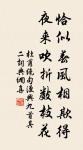 恰似春風相欺得
夜來吹折數枝花
杜甫絕句漫興九首其
二詞典網喜